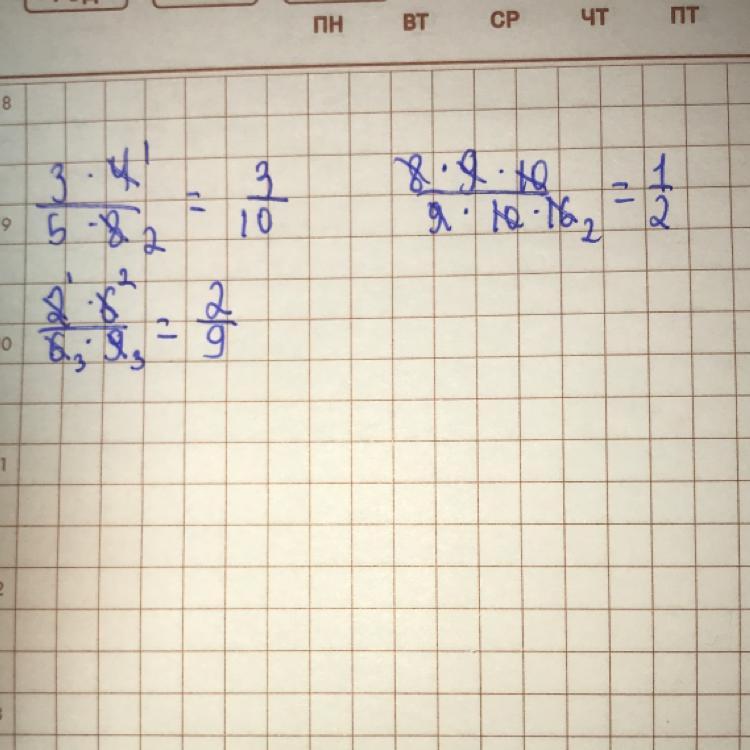 ПН ВТ СР ЧТ ПТ
8
3 · 4 1
5 · 8 2 = 3/10
8 · 9 · 10
9 · 10 · 16 2 = 1/2
9
2 1 · 6 2
6 3 · 9 3 = 2/9
0
1
2
3